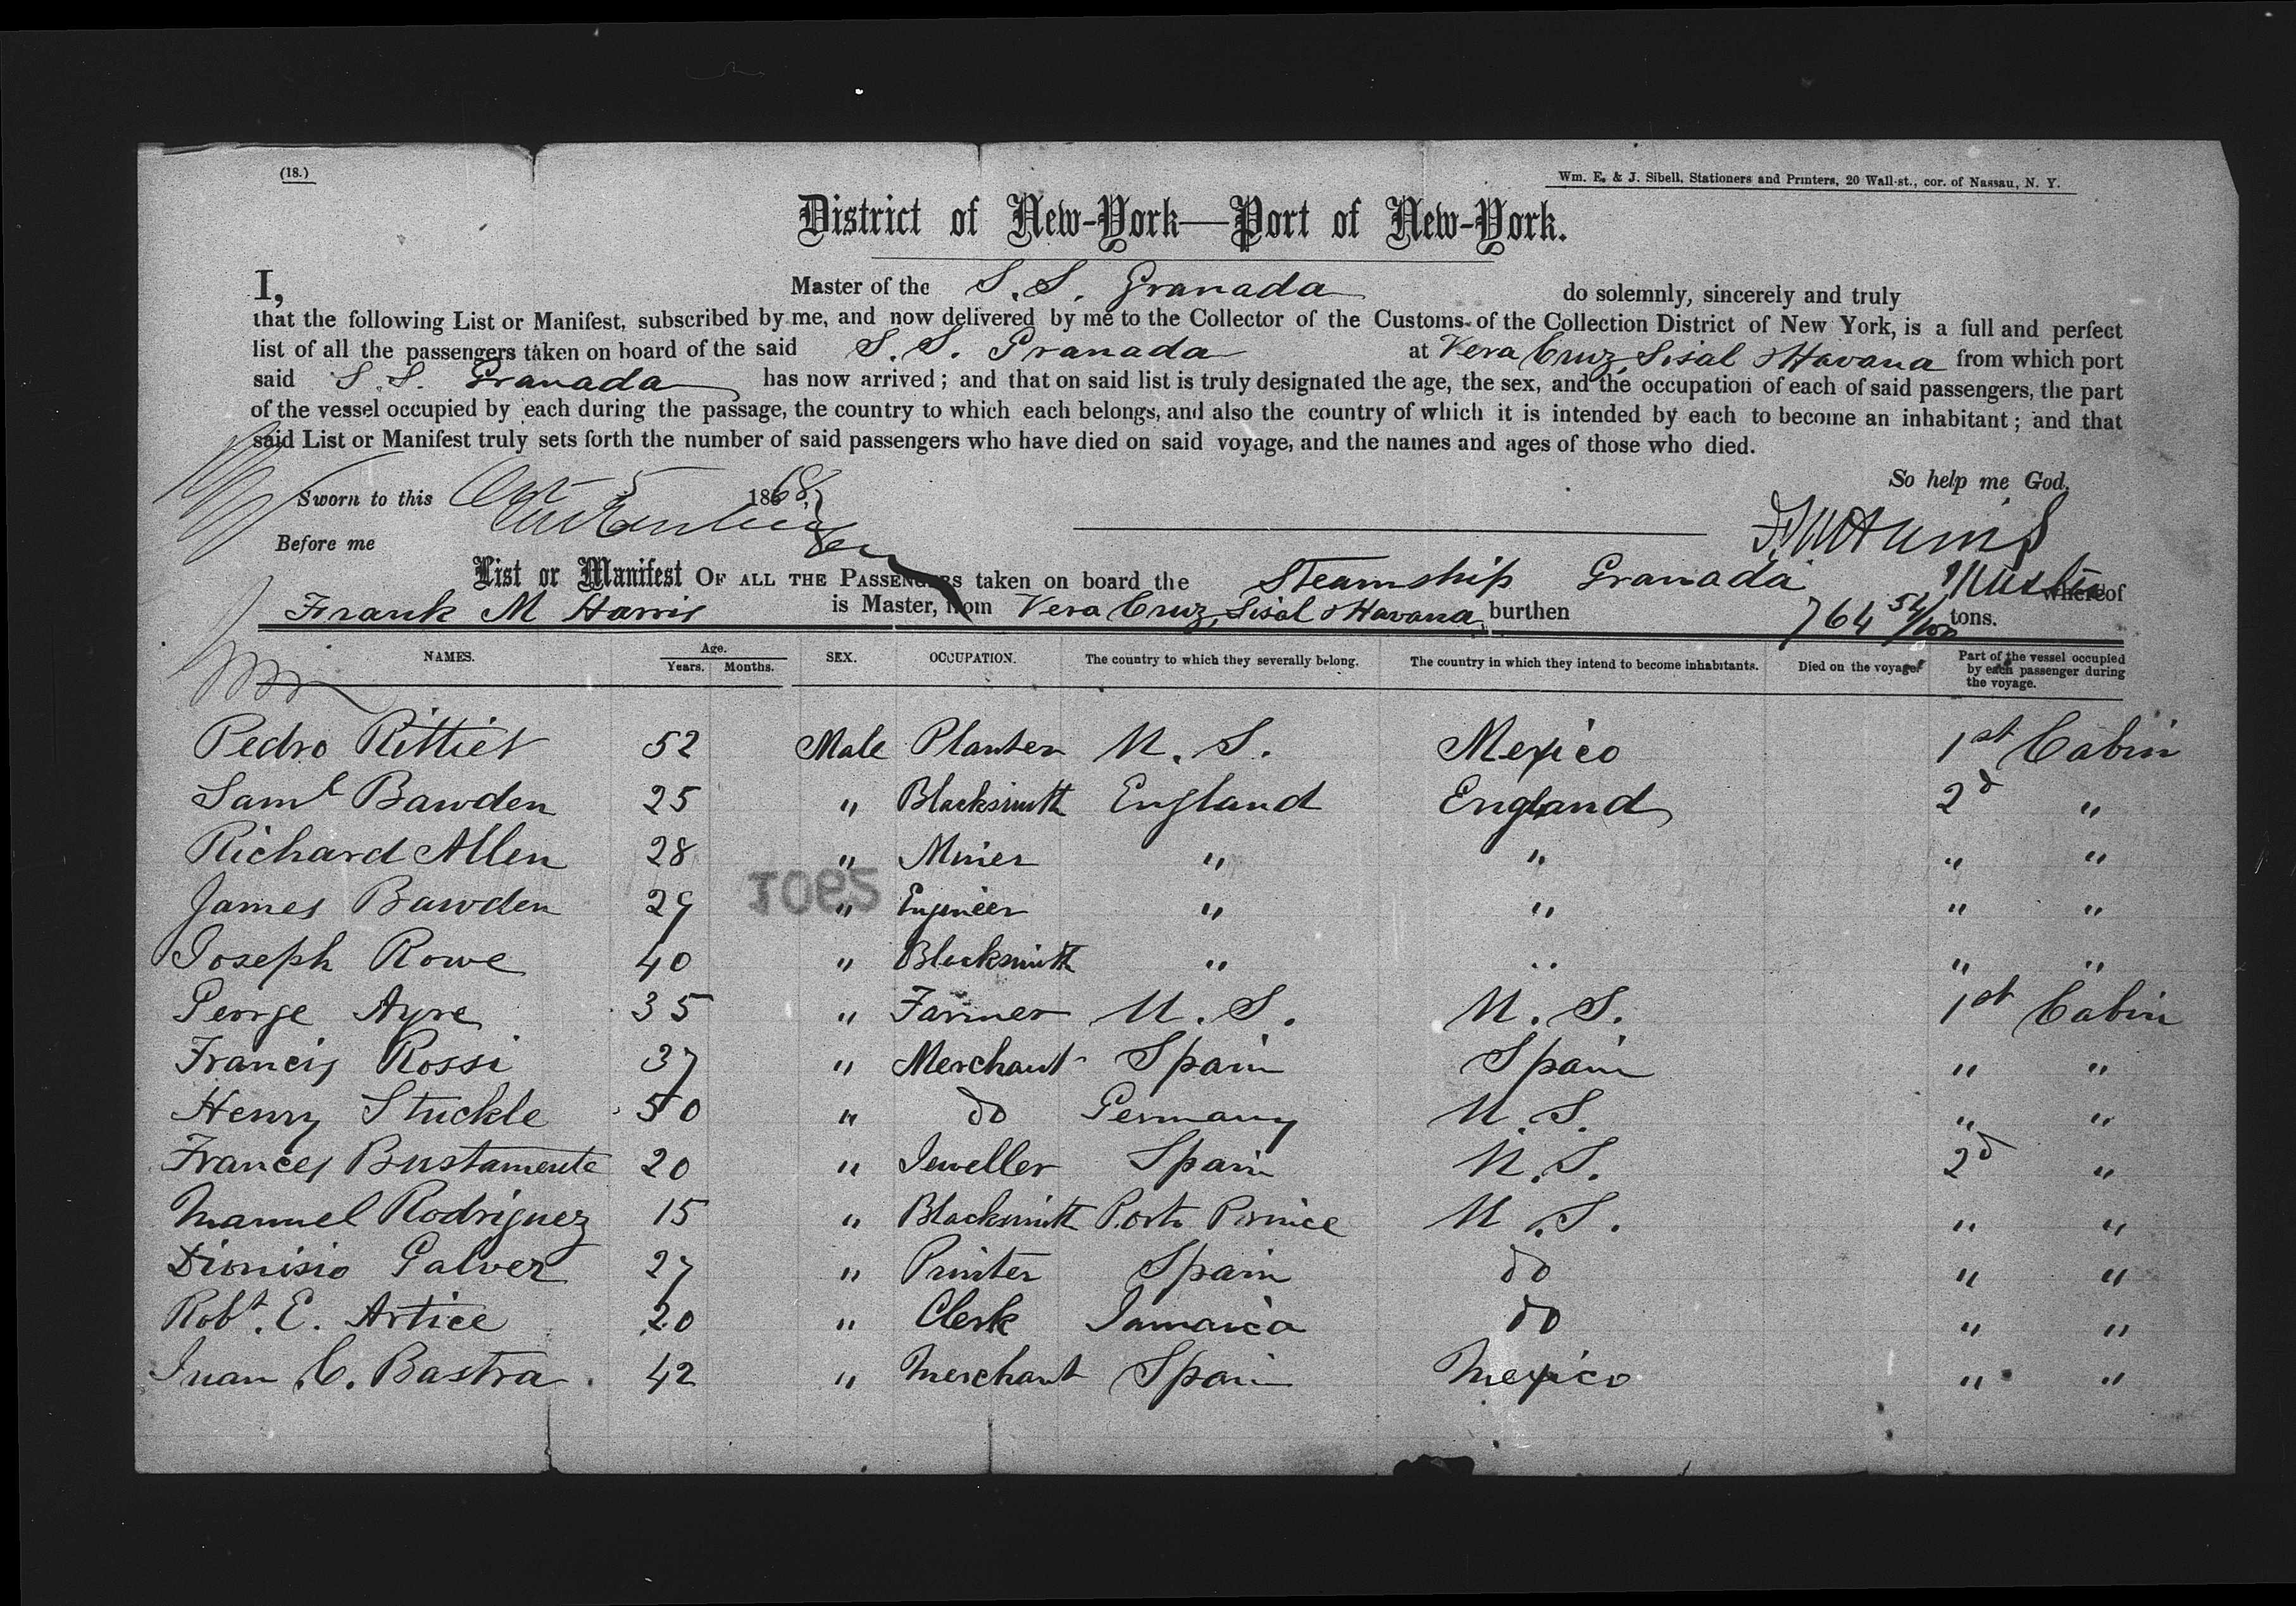 (18.)
Wm. E. & J. Sibell, Stationers and Printers, 20 Wall-st., cor. of Nassau, N. Y.
District of New-York—Port of New-York.
I, Master of the S. S. Granada do solemnly, sincerely and truly
that the following List or Manifest, subscribed by me, and now delivered by me to the Collector of the Customs of the Collection District of New York, is a full and perfect
list of all the passengers taken on board of the said S. S. Granada at Vera Cruz, Sisal & Havana from which port
said S. S. Granada has now arrived; and that on said list is truly designated the age, the sex, and the occupation of each of said passengers, the part
of the vessel occupied by each during the passage, the country to which each belongs, and also the country of which it is intended by each to become an inhabitant; and that
said List or Manifest truly sets forth the number of said passengers who have died on said voyage, and the names and ages of those who died.
So help me God,
Sworn to this Oct 5 1868
Before me
List or Manifest OF ALL THE PASSENGERS taken on board the Steamship Granada whereof
Frank M Harris is Master, from Vera Cruz, Sisal & Havana burthen 764 54/100 tons.
NAMES. Age. Years. Months. SEX. OCCUPATION. The country to which they severally belong. The country in which they intend to become inhabitants. Died on the voyage. Part of the vessel occupied by each passenger during the voyage.
Pedro Rittiet 52 Male Planter U. S. Mexico 1st Cabin
Saml Bawden 25 " Blacksmith England England 2d "
Richard Allen 28 " Miner " " " "
James Bawden 29 " Engineer " " " "
Joseph Rowe 40 " Blacksmith " " " "
George Ayre 35 " Farmer U. S. U. S. 1st Cabin
Francis Rossi 37 " Merchant Spain Spain " "
Henry Stuckle 50 " do Germany U. S. " "
Frances Bustamente 20 " Jeweller Spain U. S. 2d "
Manuel Rodriguez 15 " Blacksmith Porto Prince U. S. " "
Dionisio Galvez 27 " Printer Spain do " "
Robt. E. Artice 20 " Clerk Jamaica do " "
Juan C. Bastra 42 " Merchant Spain Mexico " "